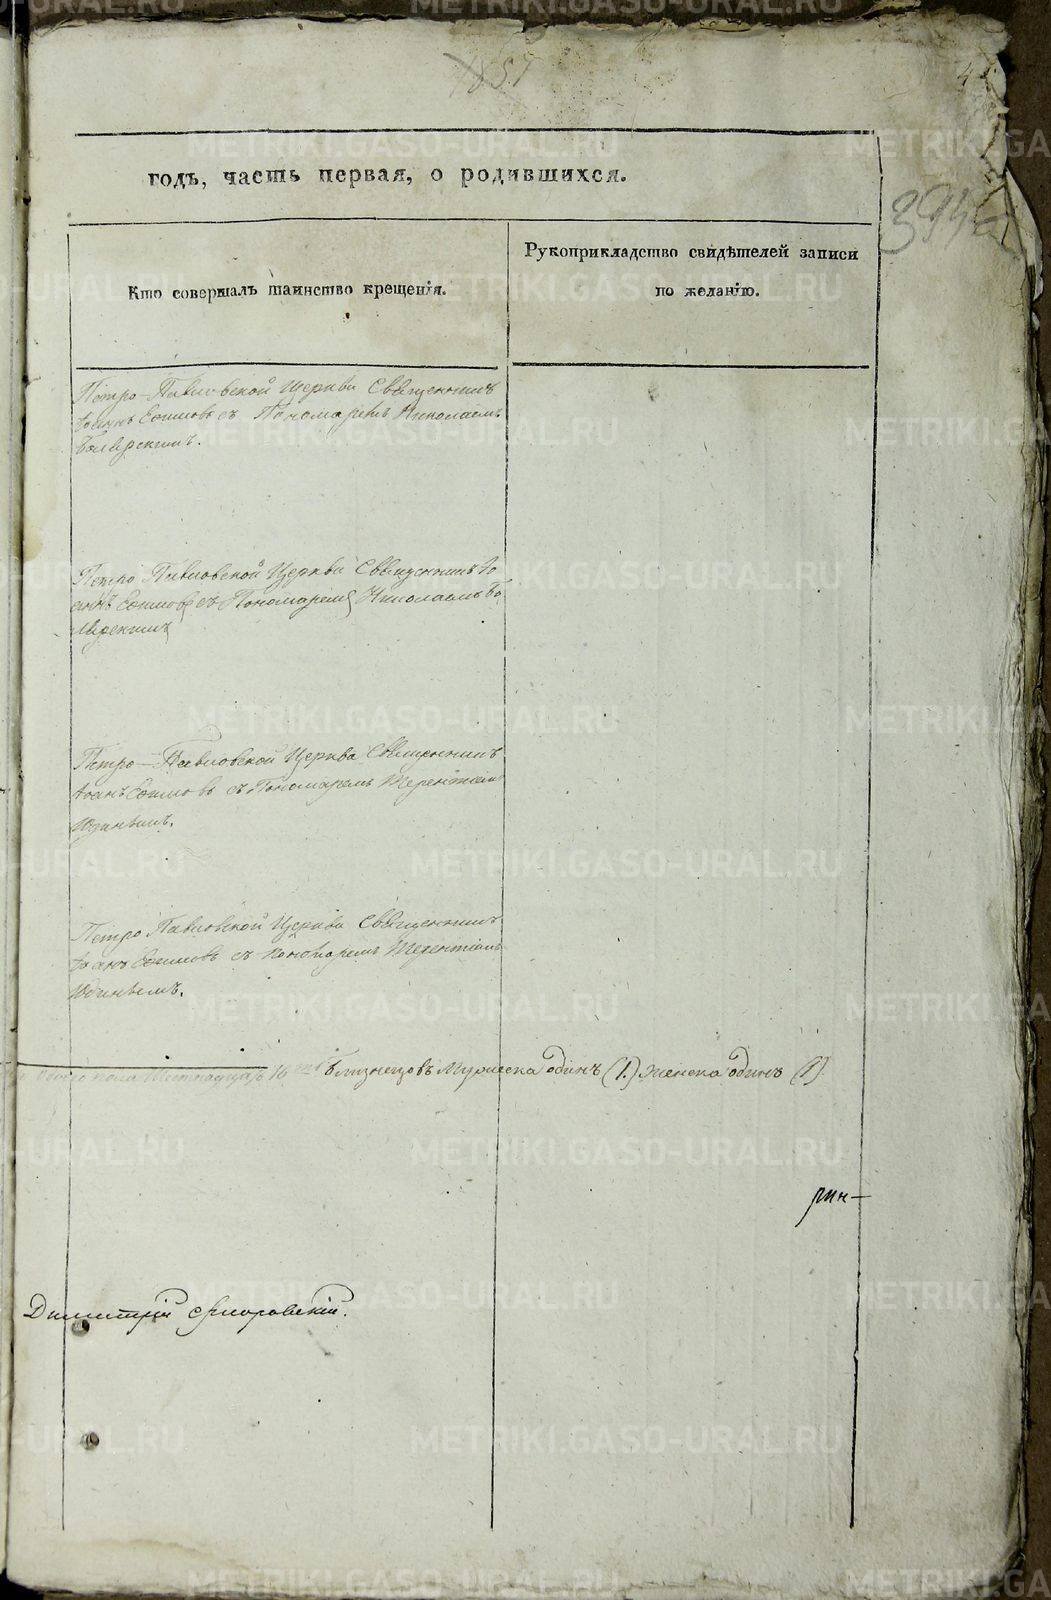 1851
4
годъ, часть первая, о родившихся.
394
Кто совершалъ таинство крещенія.
Рукоприкладство свидѣтелей записи
по желанію.
Петро-Павловской Церкви Священникъ
Іоаннъ Ефимовъ съ Пономаремъ Николаемъ
Боярскимъ.
Петро Павловской Церкви Священникъ Іо
аннъ Ефимовъ съ Пономаремъ Николаемъ Бо
ярскимъ
Петро-Павловской Церкви Священникъ
Іоанъ Ефимовъ съ Пономаремъ Терентіемъ
Удинцемъ.
Петро Павловской Церкви Священникъ
Іоанъ Ефимовъ съ Пономаремъ Терентіемъ
пола 16 Близнецовъ Мужеска одинъ (1.) Женска одинъ (1)
рин-
Димитрій
METRIKI.GASO-URAL.RU